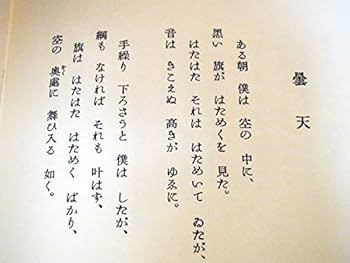 曇天
ある朝 僕は 空の 中に、
黒い 旗が はためくを 見た。
はたはた それは はためいて ゐたが、
音は きこえぬ 高きが ゆゑに。
手繰り 下ろさうと 僕は したが、
綱も なければ それも 叶はず、
旗は はたはた はためく ばかり、
空の 奥處に 舞ひ入る 如く。